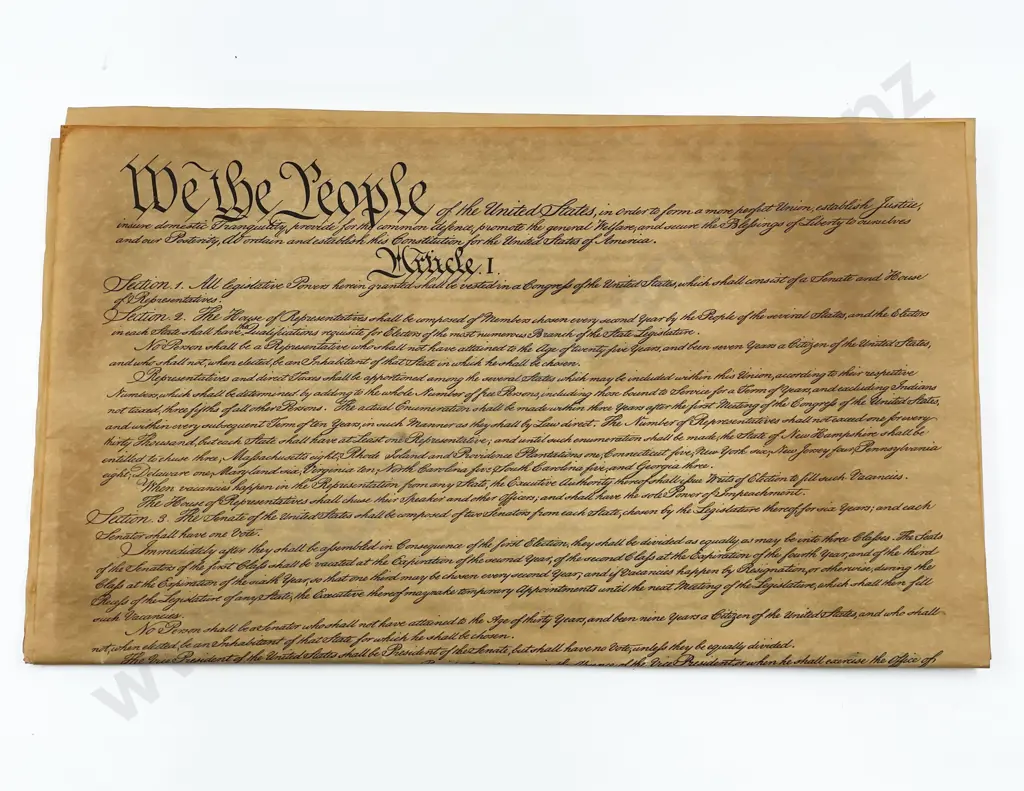 We the People of the United States, in order to form a more perfect Union, establish Justice,
insure domestic Tranquility, provide for the common defence, promote the general Welfare, and secure the Blessings of Liberty to ourselves
and our Posterity, do ordain and establish this Constitution for the United States of America.
Article. I.
Section 1. All legislative Powers herein granted shall be vested in a Congress of the United States, which shall consist of a Senate and House
of Representatives.
Section 2. The House of Representatives shall be composed of Members chosen every second Year by the People of the several States, and the Electors
in each State shall have the Qualifications requisite for Electors of the most numerous Branch of the State Legislature.
No Person shall be a Representative who shall not have attained to the Age of twenty five Years, and been seven Years a Citizen of the United States,
and who shall not, when elected, be an Inhabitant of that State in which he shall be chosen.
Representatives and direct Taxes shall be apportioned among the several States which may be included within this Union, according to their respective
Numbers, which shall be determined by adding to the whole Number of free Persons, including those bound to Service for a Term of Years, and excluding Indians
not taxed, three fifths of all other Persons. The actual Enumeration shall be made within three Years after the first Meeting of the Congress of the United States,
and within every subsequent Term of ten Years, in such Manner as they shall by Law direct. The Number of Representatives shall not exceed one for every
thirty Thousand, but each State shall have at Least one Representative; and until such enumeration shall be made, the State of New Hampshire shall be
entitled to chuse three, Massachusetts eight, Rhode Island and Providence Plantations one, Connecticut five, New York six, New Jersey four, Pennsylvania
eight, Delaware one, Maryland six, Virginia ten, North Carolina five, South Carolina five, and Georgia three.
When vacancies happen in the Representation from any State, the Executive Authority thereof shall issue Writs of Election to fill such Vacancies.
The House of Representatives shall chuse their Speaker and other Officers; and shall have the sole Power of Impeachment.
Section. 3. The Senate of the United States shall be composed of two Senators from each State, chosen by the Legislature thereof, for six Years; and each
Senator shall have one Vote.
Immediately after they shall be assembled in Consequence of the first Election, they shall be divided as equally as may be into three Classes. The Seats
of the Senators of the first Class shall be vacated at the Expiration of the second Year, of the second Class at the Expiration of the fourth Year, and of the third
Class at the Expiration of the sixth Year, so that one third may be chosen every second Year; and if Vacancies happen by Resignation, or otherwise, during the
Recess of the Legislature of any State, the Executive thereof may make temporary Appointments until the next Meeting of the Legislature, which shall then fill
such Vacancies.
No Person shall be a Senator who shall not have attained to the Age of thirty Years, and been nine Years a Citizen of the United States, and who shall
not, when elected, be an Inhabitant of that State, for which he shall be chosen.
The Vice President of the United States shall be President of the Senate, but shall have no Vote, unless they be equally divided.
the Absence of the Vice President, or when he shall exercise the Office of